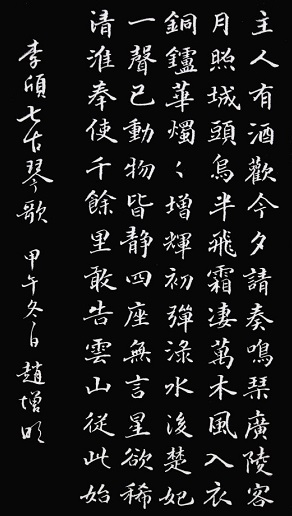 主人有酒歡今夕請奏鳴琹廣陵客
月照城頭烏半飛霜淒萬木風入衣
銅鑪華燭〻增輝初彈淥水後楚妃
一聲已動物皆静四座無言星欲稀
清淮奉使千餘里敢告雲山從此始
李頎七古琴歌 甲午冬日 趙增明